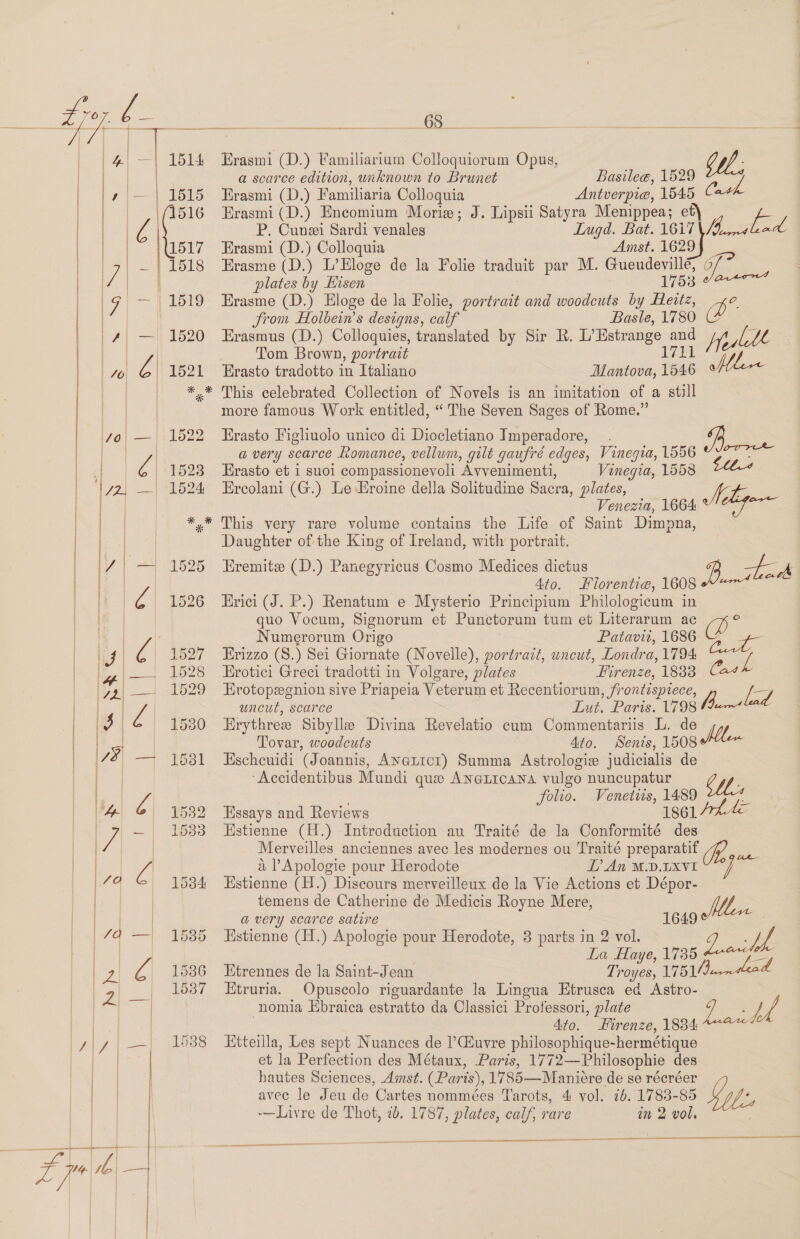 £707. 6 —
68
4 — 1514 Erasmi (D.) Familiarium Colloquiorum Opus,
a scarce edition, unknown to Brunet Basileæ, 1529 Ellis
1 — 1515 Erasmi (D.) Familiaria Colloquia Antverpiæ, 1545 Cash
1516 Erasmi (D.) Encomium Moriæ; J. Lipsii Satyra Menippea; et
6 P. Cunæi Sardi venales Lugd. Bat. 1617 Bumstead
1517 Erasmi (D.) Colloquia Amst. 1629
7 - 1518 Erasme (D.) L'Eloge de la Folie traduit par M. Gueudeville,
plates by Eisen 1753
9 — 1519 Erasme (D.) Eloge de la Folie, portrait and woodcuts by Heitz,
from Holbein's designs, calf Basle, 1780 Do
1 — 1520 Erasmus (D.) Colloquies, translated by Sir R. L'Estrange and
Tom Brown, portrait 1711
10 6 1521 Erasto tradotto in Italiano Mantova, 1546 Allen
*** This celebrated Collection of Novels is an imitation of a still
more famous Work entitled, “ The Seven Sages of Rome.”
10 — 1522 Erasto Figliuolo unico di Diocletiano Imperadore,
a very scarce Romance, vellum, gilt gaufré edges, Vinegia, 1556
6 1523 Erasto et i suoi compassionevoli Avvenimenti, Vinegia, 1558 Ellis
12 — 1524 Ercolani (G.) Le Eroine della Solitudine Sacra, plates,
Venezia, 1664
*** This very rare volume contains the Life of Saint Dimpna,
Daughter of the King of Ireland, with portrait.
1 — 1525 Eremitæ (D.) Panegyricus Cosmo Medices dictus
4to. Florentiæ, 1608 Bumstead
6 1526 Erici (J. P.) Renatum e Mysterio Principium Philologicum in
quo Vocum, Signorum et Punctorum tum et Literarum ac
Numerorum Origo Patavii, 1686 Do
3 6 1527 Erizzo (S.) Sei Giornate (Novelle), portrait, uncut, Londra, 1794
4 — 1528 Erotici Greci tradotti in Volgare, plates Firenze, 1833 Cash
12 — 1529 Erotopægnion sive Priapeia Veterum et Recentiorum, frontispiece,
uncut, scarce Lut. Paris. 1798 Bumstead
3 6 1530 Erythreæ Sibyllæ Divina Revelatio cum Commentariis L. de
Tovar, woodcuts 4to. Senis, 1508 Allen
18 — 1531 Eschcuidi (Joannis, Anglici) Summa Astrologiæ judicialis de
Accidentibus Mundi quæ Anglicana vulgo nuncupatur
folio. Venetiis, 1489 Ellis
4 6 1532 Essays and Reviews 1861
7 - 1533 Estienne (H.) Introduction au Traité de la Conformité des
Merveilles anciennes avec les modernes ou Traité preparatif
à l'Apologie pour Herodote L'An M.D.LXVI
10 6 1534 Estienne (H.) Discours merveilleux de la Vie Actions et Dépor-
temens de Catherine de Medicis Royne Mere,
a very scarce satire 1649 Allen
10 — 1535 Estienne (H.) Apologie pour Herodote, 3 parts in 2 vol.
La Haye, 1735 Quaritch
2 6 1536 Etrennes de la Saint-Jean Troyes, 1751 Bumstead
2 — 1537 Etruria. Opuscolo riguardante la Lingua Etrusca ed Astro-
nomia Ebraica estratto da Classici Professori, plate
4to. Firenze, 1834 Quaritch
1 1 — 1538 Etteilla, Les sept Nuances de l'Œuvre philosophique-hermétique
et la Perfection des Métaux, Paris, 1772—Philosophie des
hautes Sciences, Amst. (Paris), 1785—Manière de se récréer
avec le Jeu de Cartes nommées Tarots, 4 vol. ib. 1783-85
—Livre de Thot, ib. 1787, plates, calf, rare in 2 vol. Ellis